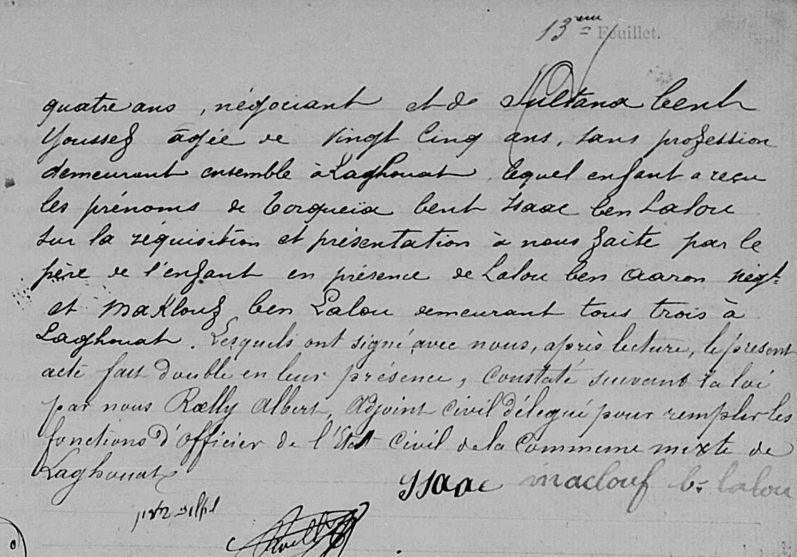 13eme Feuillet.
quatre ans, négociant et de Sultana bent
Youssef agée de vingt cinq ans, sans profession
demeurant ensemble à Laghouat, lequel enfant a reçu
les prénoms de Torqueia bent Isaac ben Lalou
sur la requisition et présentation à nous faite par le
père de l'enfant en présence de Lalou ben Aaron négt.
et Maklouf ben Lalou demeurant tous trois à
Laghouat. Lesquels ont signé avec nous, après lecture, le présent
acte fait double en leur présence, constaté suivant la loi
par nous Rœlly Albert, adjoint civil délégué pour remplir les
fonctions d'officier de l'état civil de la Commune mixte de
Laghouat
Isaac maclouf b. lalou